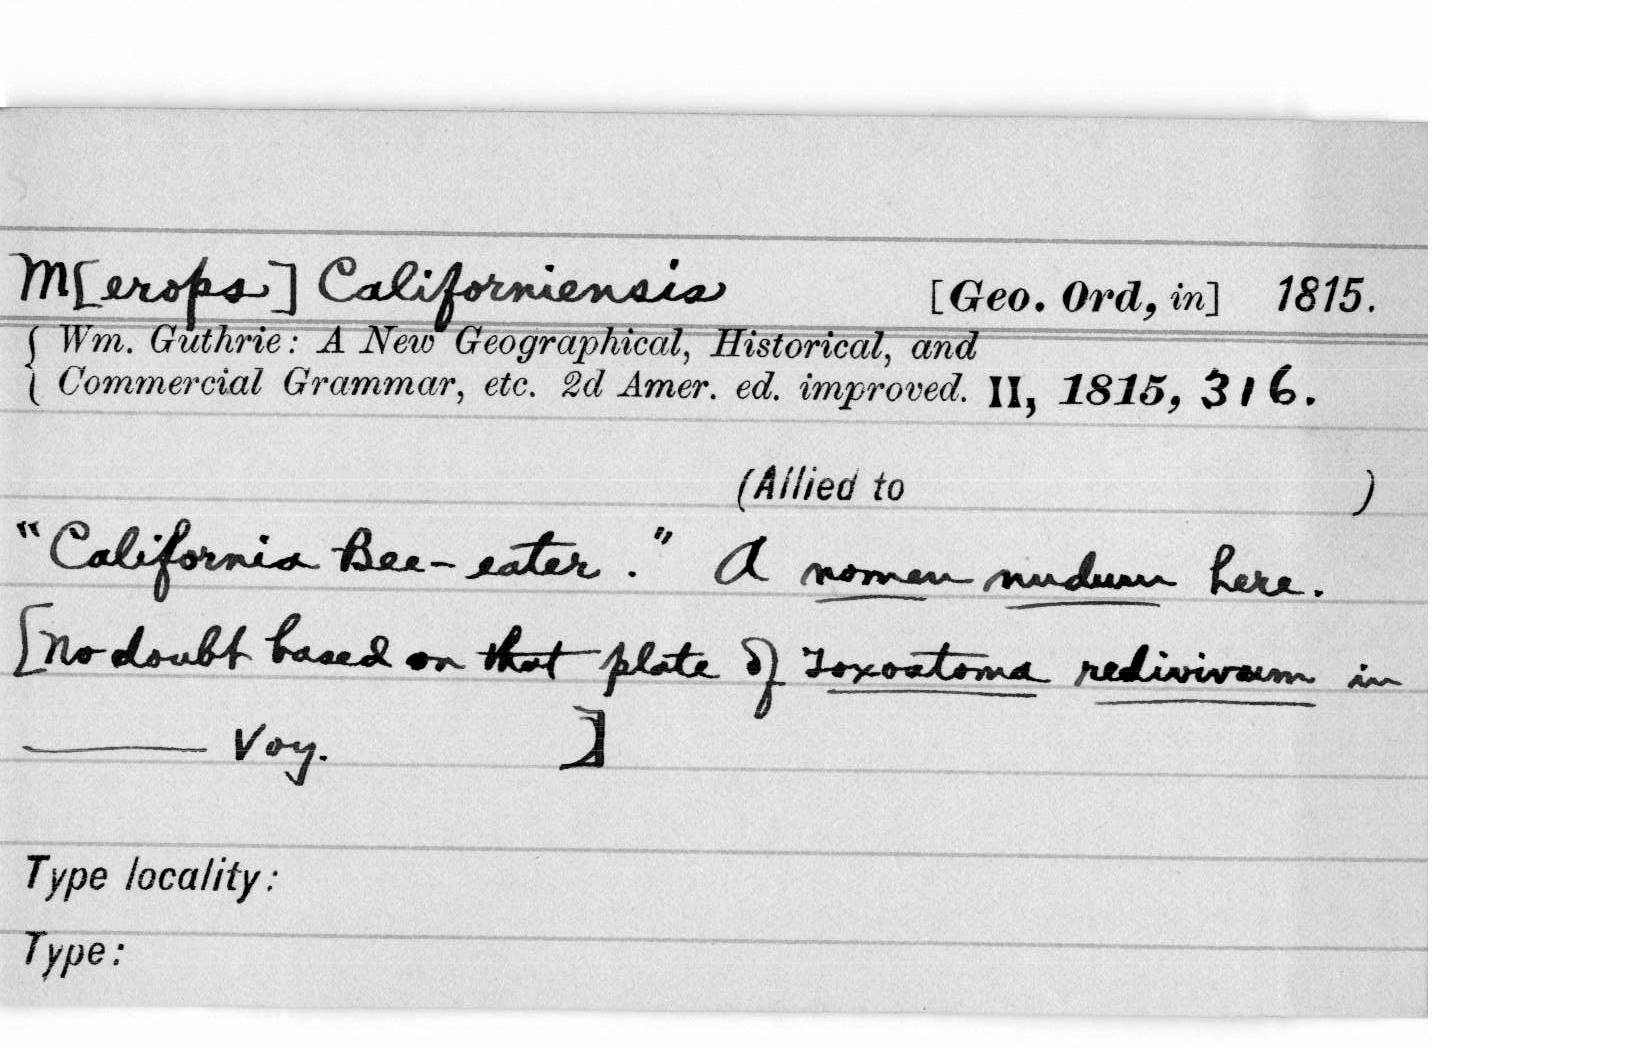 M[erops] Californiensis [Geo. Ord, in] 1815.
Wm. Guthrie: A New Geographical, Historical, and
Commercial Grammar, etc. 2d Amer. ed. improved. II, 1815, 316.
(Allied to )
"California Bee-eater." A nomen nudum here.
[No doubt based on that plate of Toxostoma redivivum in
——— Voy. ]
Type locality:
Type: